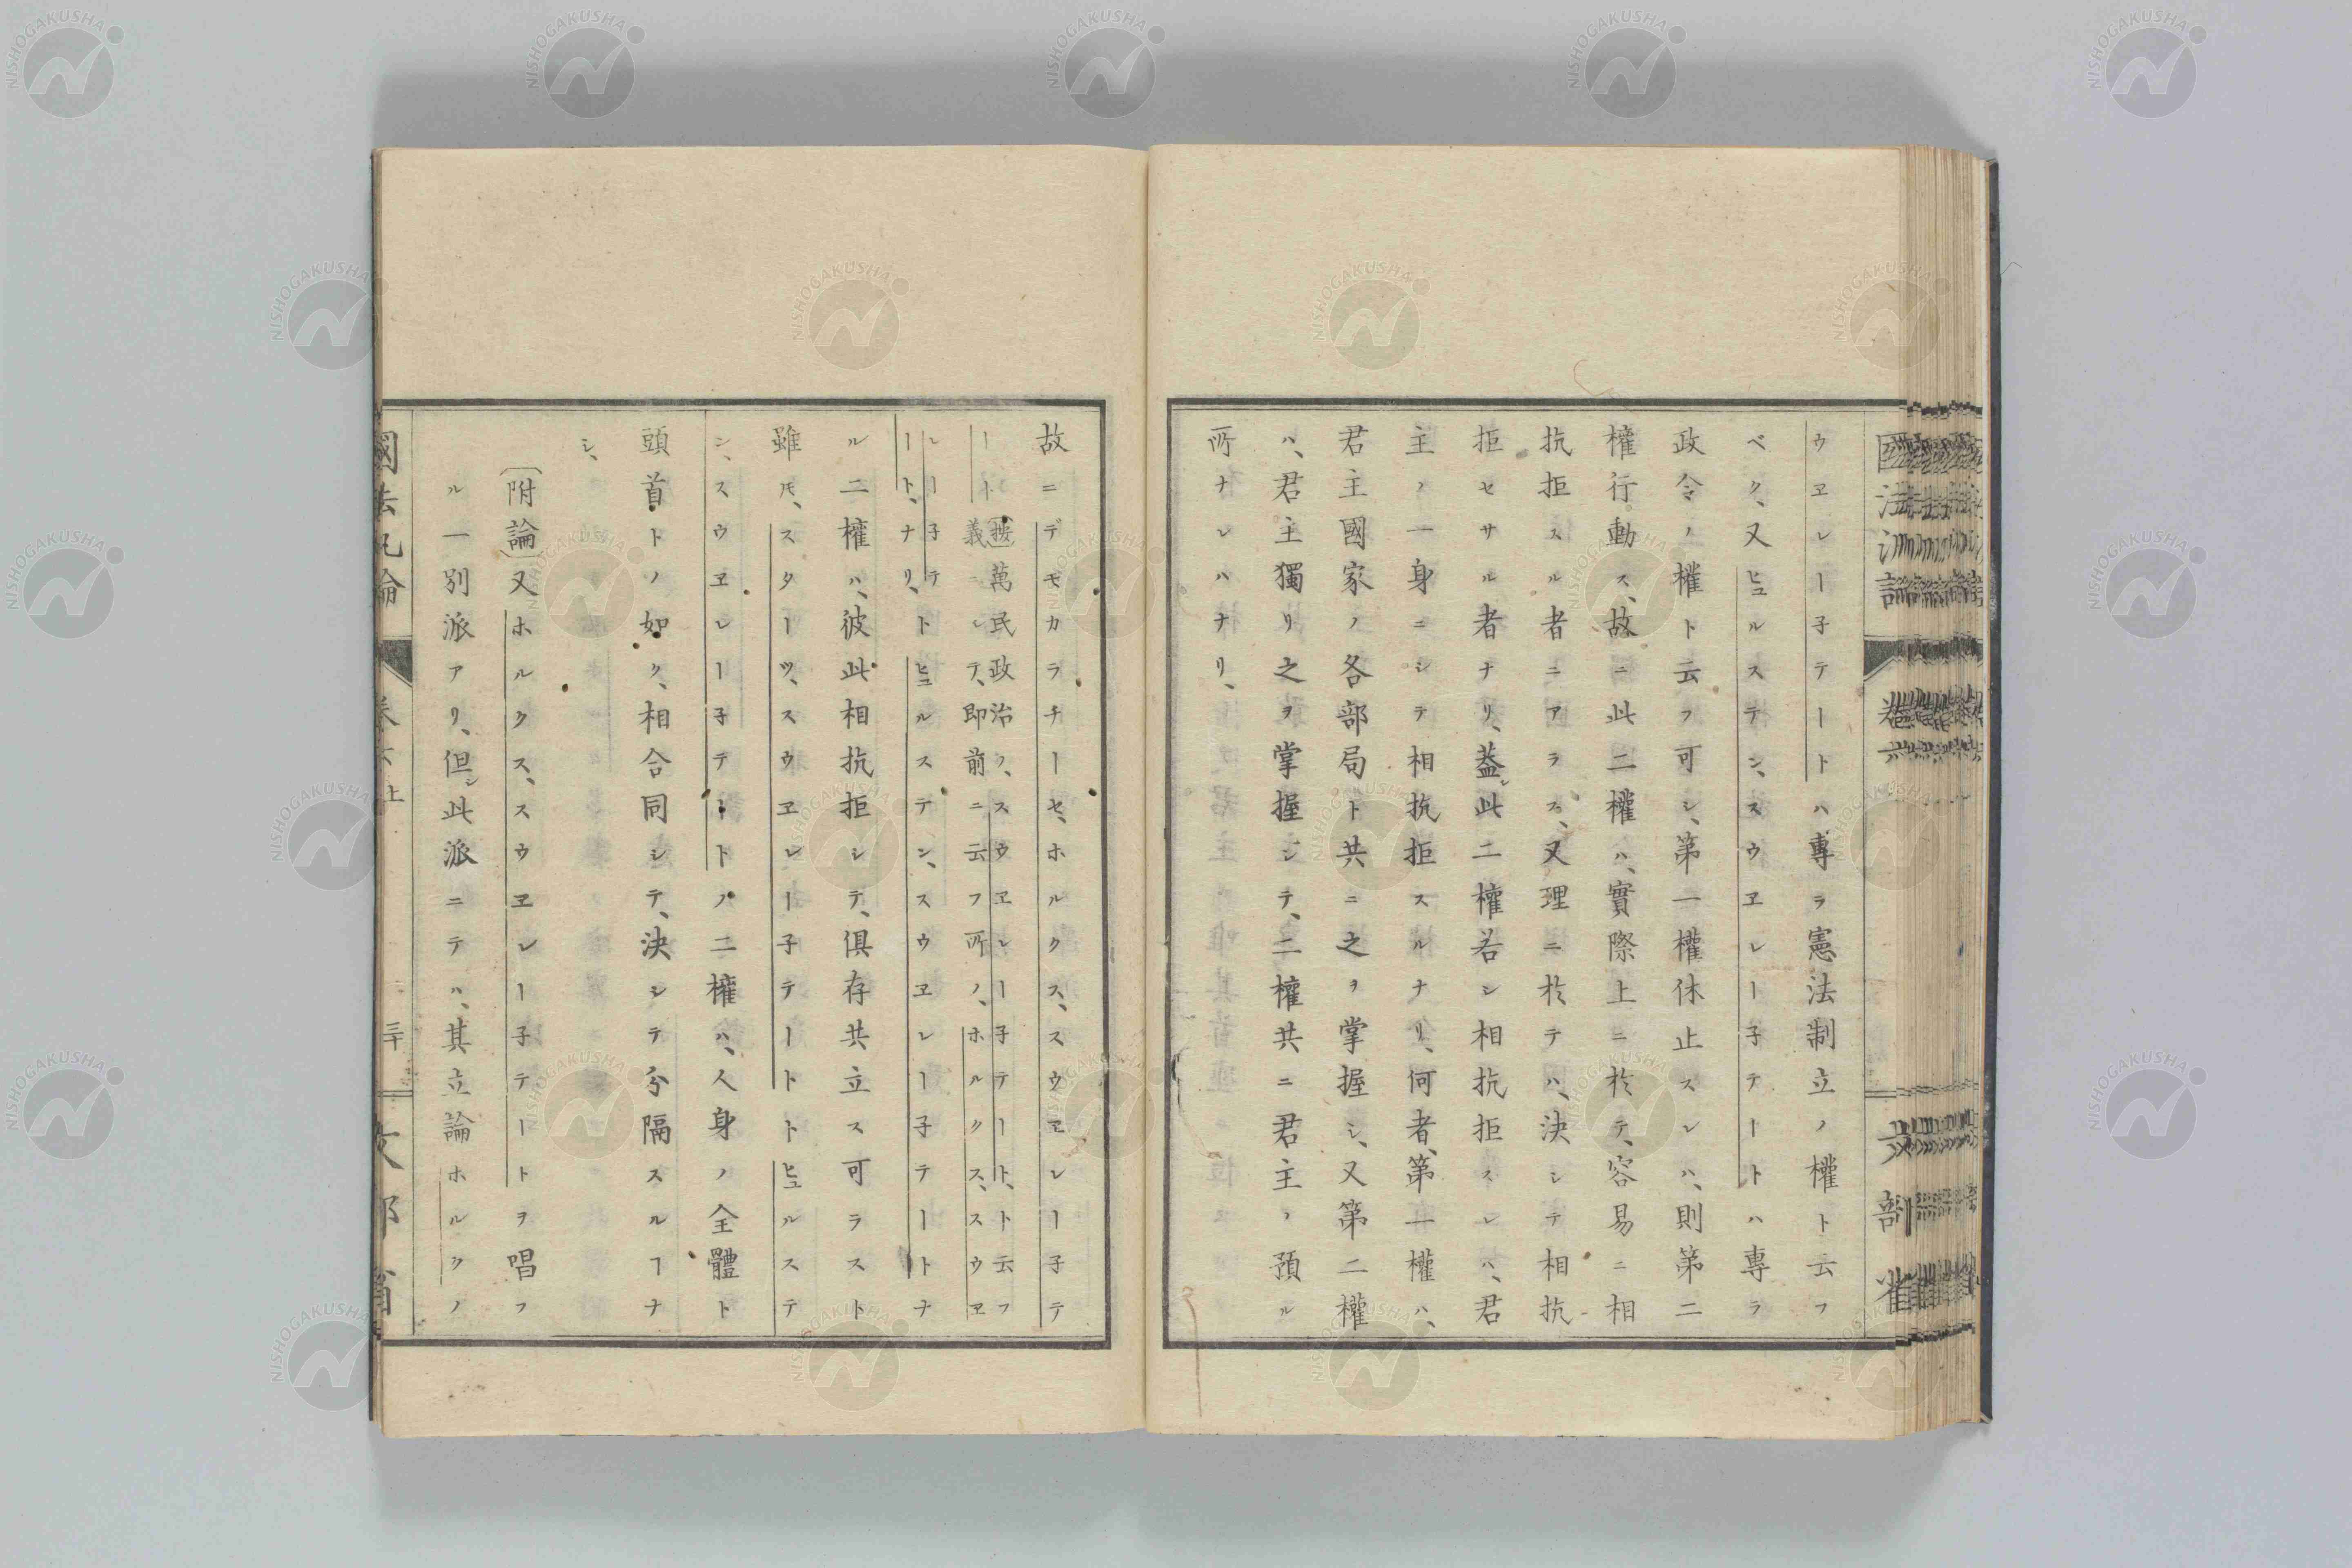 ウヱレー子テートハ專ラ憲法制立ノ權ト云フ
ベク、又ヒュルステン、スウヱレー子テートハ專ラ
政令ノ權ト云フ可シ、第一權休止スレハ、則第二
權行動ス、故ニ此二權ハ、實際上ニ於テ、容易ニ相
抗拒スル者ニアラス、又理ニ於テハ、決シテ相抗
拒セサル者ナリ、蓋シ此二權若シ相抗拒スレハ、君
主ノ一身ニシテ相抗拒スルナリ、何者、第一權ハ、
君主國家ノ各部局ト共ニ之ヲ掌握シ、又第二權
ハ、君主獨リ之ヲ掌握シテ、二權共ニ君主ノ預ル
所ナレハナリ、
故ニデモカラチーセ、ホルクス、スウヱレー子テ
ート〔按〕萬民政治ク、スウヱレー子テート、ト云フ
義ニシテ、即前ニ云フ所ノ、ホルクス、スウヱ
レー子テ
ート、ナリ、トヒュルステン、スウヱレー子テートナ
ル二權ハ、彼此相抗拒シテ、俱存共立ス可ラスト
雖𪜈、スターツ、スウヱレー子テートトヒュルステ
ン、スウヱレー子テートノ二權ハ、人身ノ全體ト
頭首トノ如ク、相合同シテ、決シテ分隔スルヿナ
シ、
〔附論〕又ホルクス、スウヱレー子テートヲ唱フ
ル一別派アリ、但シ此派ニテハ、其立論ホルクノ
國法汎論
卷六上
三十
文部省